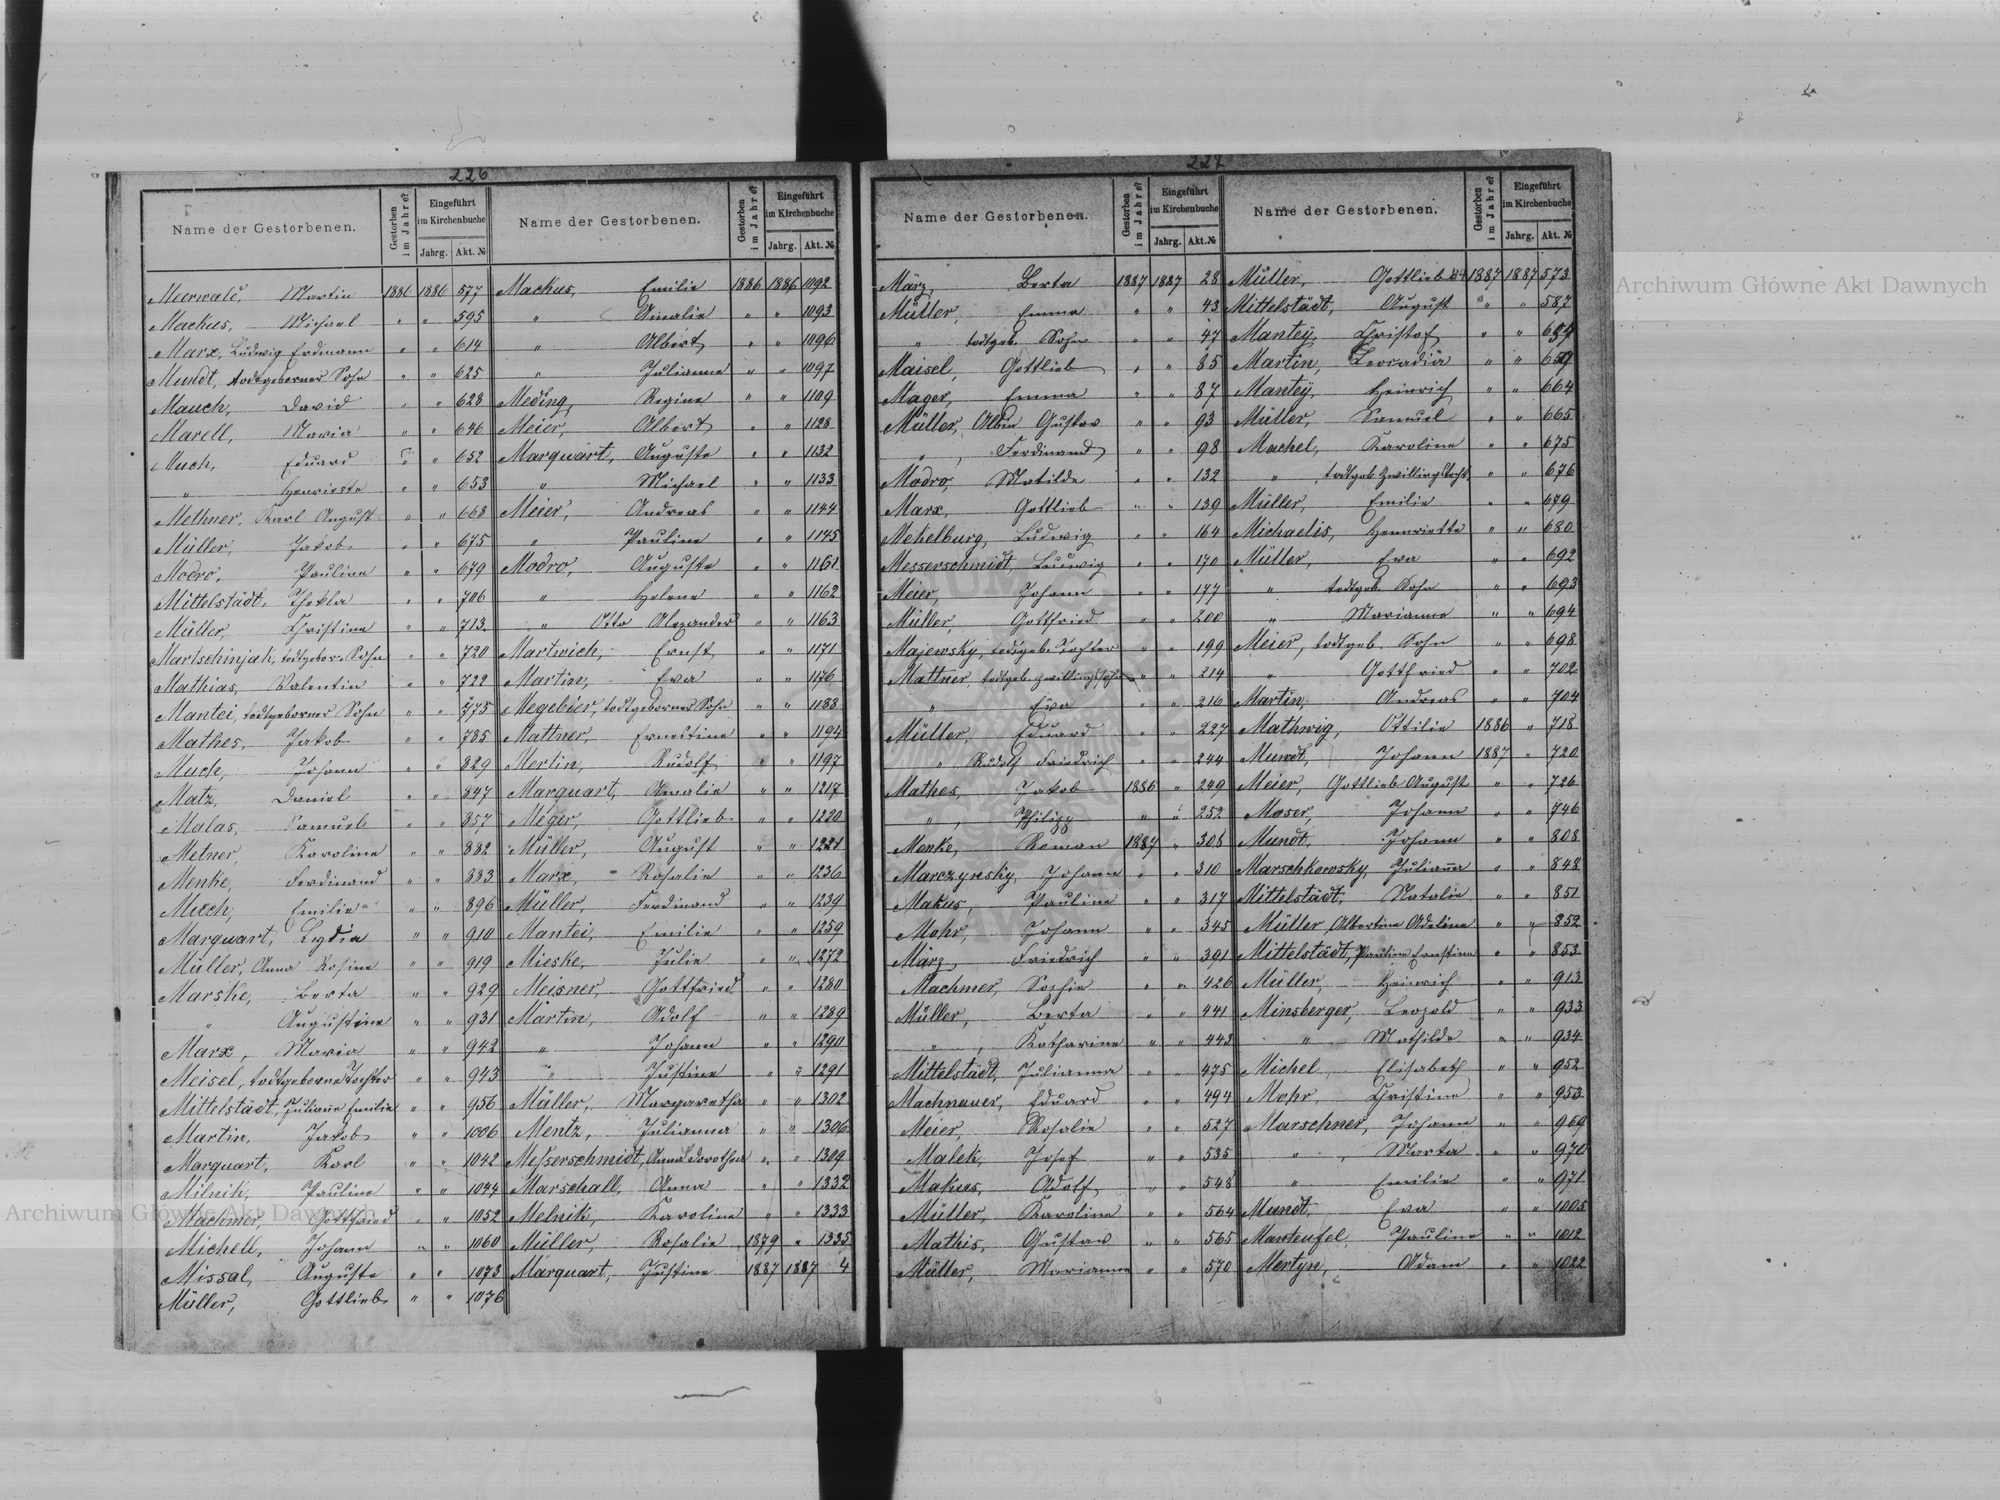 226
Name der Gestorbenen.
Gestorben im Jahre?
Eingeführt im Kirchenbuche
Jahrg. Akt. №
Meerwald, Martin 1886 1886 577
Mackus, Michael " " 595
Marx, Ludwig Erdmann " " 614
Mundt, todtgeborner Sohn " " 625
Mauch, David " " 628
Marell, Maria " " 646
Much, Eduard " " 652
" Henriette " " 653
Methner, Karl August " " 668
Müller, Jakob " " 675
Modro, Pauline " " 679
Mittelstädt, Thekla " " 706
Müller, Christine " " 713
Martschinjak, todtgebor. Sohn " " 720
Mathias, Valentin " " 722
Mantei, todtgeborner Sohn " " 775
Mathes, Jakob " " 785
Much, Johann " " 829
Matz, Daniel " " 847
Malas, Samuel " " 857
Metner, Karoline " " 882
Menke, Ferdinand " " 883
Much, Emilie " " 896
Marquart, Lydia " " 910
Müller, Anna Rosine " " 919
Marske, Berta " " 929
" Augustine " " 931
Marx, Maria " " 942
Meisel, todtgeborne Tochter " " 943
Mittelstädt, Juliane Emilie " " 956
Martin, Jakob " " 1006
Marquart, Karl " " 1042
Milnik, Pauline " " 1044
Machmer, Gottfried " " 1052
Michell, Johann " " 1060
Missal, Auguste " " 1073
Müller, Gottlieb " " 1076
Name der Gestorbenen.
Gestorben im Jahre?
Eingeführt im Kirchenbuche
Jahrg. Akt. №
Mackus, Emilie 1886 1886 1092
" Amalie " " 1093
" Albert " " 1096
" Julianne " " 1097
Meding, Regine " " 1109
Meier, Albert " " 1128
Marquart, Auguste " " 1132
" Michael " " 1133
Meier, Andreas " " 1144
" Pauline " " 1145
Modro, Auguste " " 1161
" Helene " " 1162
" Otto Alexander " " 1163
Martwich, Ernst " " 1171
Martin, Eva " " 1176
Megebier, todtgeborner Sohn " " 1188
Mattner, Ernestine " " 1194
Mertin, Rudolf " " 1197
Marquart, Amalie " " 1217
Meger, Gottlieb " " 1220
Müller, August " " 1221
Marx, Rosalie " " 1236
Müller, Ferdinand " " 1239
Mantei, Emilie " " 1259
Mieske, Julie " " 1272
Meisner, Gottfried " " 1280
Martin, Adolf " " 1289
" Johann " " 1290
" Justine " " 1291
Müller, Margaretha " " 1302
Mentz, Julianna " " 1306
Meſserschmidt, Anna Dorothea " " 1309
Marschall, Anna " " 1332
Melnik, Karoline " " 1333
Müller, Rosalie 1879 " 1335
Marquart, Justine 1887 1887 4
227
Name der Gestorbenen.
Gestorben im Jahre?
Eingeführt im Kirchenbuche
Jahrg. Akt. №
März, Berta 1887 1887 28
Müller, Emma " " 43
" todtgeb. Sohn " " 47
Maisel, Gottlieb " " 85
Mager, Emma " " 87
Müller, Albin Gustav " " 93
", Ferdinand " " 98
Modro, Matilde " " 132
Marx, Gottlieb " " 139
Mekelburg, Ludwig " " 164
Messerschmidt, Ludwig " " 170
Meier, Johann " " 177
Müller, Gottfried " " 200
Majewsky, todtgeb. Tochter " " 199
Mattner, todtgeb. Zwillingssohn " " 214
" Eva " " 216
Müller, Eduard " " 227
" Rudolf Friedrich " " 244
Mathes, Jakob 1886 " 249
", Philipp " " 252
Menke, Roman 1887 " 308
Marczynsky, Johann " " 310
Makus, Pauline " " 317
Mohr, Johann " " 345
März, Friedrich " " 391
Machmer, Sophie " " 426
Müller, Berta " " 441
", Katharine " " 443
Mittelstädt, Julianna " " 475
Machnauer, Eduard " " 494
Meier, Rosalie " " 527
Malek, Josef " " 535
Makus, Adolf " " 548
Müller, Karoline " " 564
Mathis, Gustav " " 565
Müller, Marianne " " 570
Name der Gestorbenen.
Gestorben im Jahre?
Eingeführt im Kirchenbuche
Jahrg. Akt. №
Müller, Gottlieb 1887 1887 573
Mittelstädt, August " " 587
Mantey, Christof " "
Martin, Leocadia " "
Mantey, Heinrich " " 664
Müller, Samuel " " 665
Machel, Karoline " " 675
" todtgeb. Zwillingstocht. " " 676
Müller, Emilie " " 679
Michaelis, Hennriette " " 680
Müller, Eva " " 692
" todtgeb. Sohn " " 693
" Marianne " " 694
Meier, todtgeb. Sohn " " 698
" Gottfried " " 702
Martin, Andreas " " 704
Mathwig, Ottilie 1886 " 718
Mundt, Johann 1887 " 720
Meier, Gottlieb August " " 726
Moser, Johann " " 746
Mundt, Johann " " 808
Marschkowsky, Julianna " " 848
Mittelstädt, Natalie " " 851
Müller, Albertine Adeline " " 852
Mittelstädt, Pauline Ernstine " " 853
Müller, Heinrich " " 913
Minsberger, Leopold " " 933
" Mathilde " " 934
Michel, Elisabeth " " 952
Mohr, Christine " " 953
Marschner, Johann " " 969
", Marta " " 970
" Emilie " " 971
Mundt, Eva " " 1005
Manteufel, Pauline " " 1012
Mertyn, Adam " " 1022
Archiwum Główne Akt Dawnych
Archiwum Główne Akt Dawnych